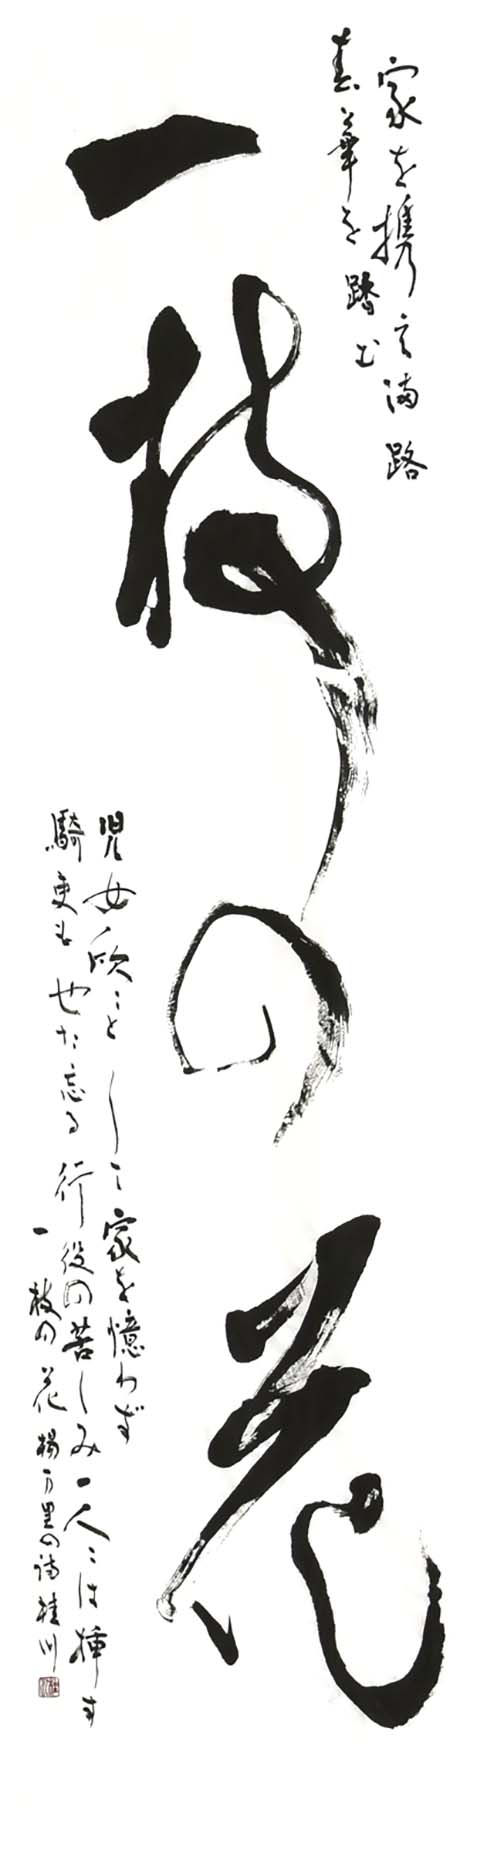 家を携え満路
春華を踏む
一枝の花
児女欣々として家を憶わず
騎吏も也た忘る行役の苦しみ一人々は挿す
一枝の花 楊万里の詩 桂川